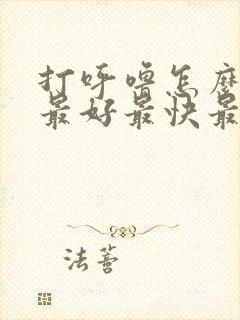 打呼噜怎麼
最好最快最
法善